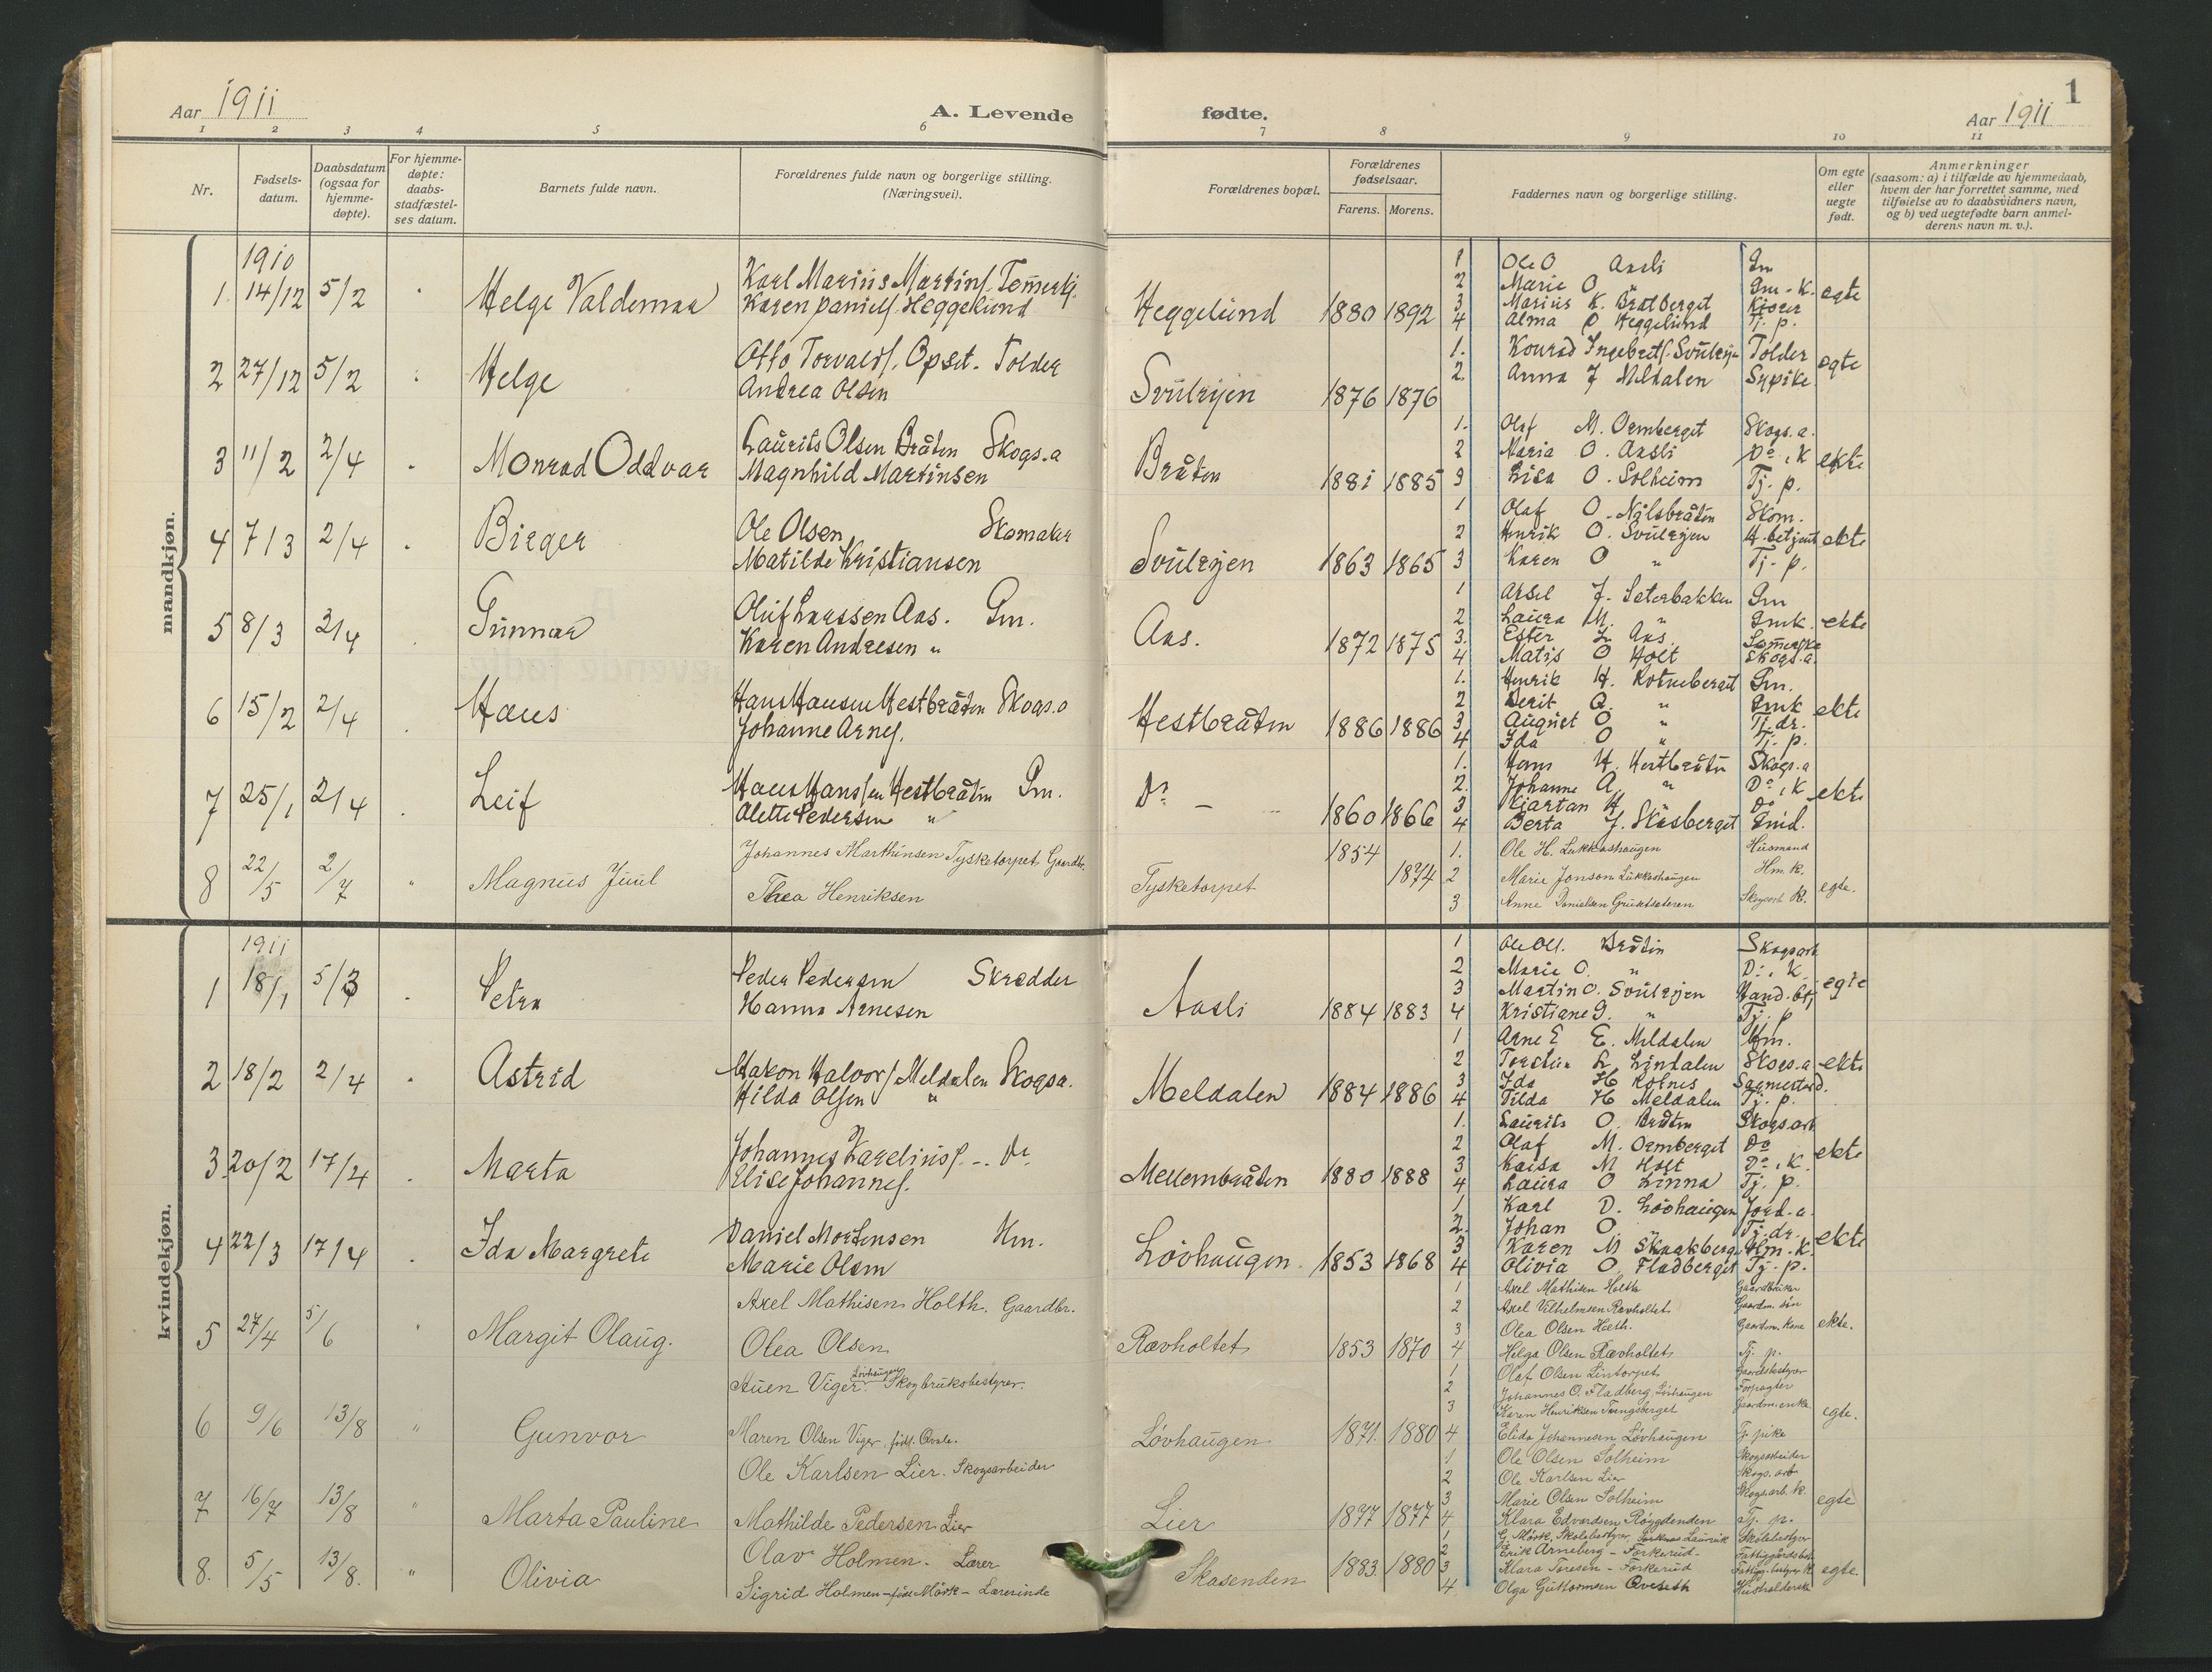 Aar 1911
A. Levende
fødte.
1
Aar 1911
1 2 3 4 5 6 7 8 9 10 11
Nr.
Fødsels-
datum.
Daabsdatum
(ogsaa for
hjemme-
døpte).
For hjemme-
døpte:
daabs-
stadfæstel-
ses datum.
Barnets fulde navn.
Forældrenes fulde navn og borgerlige stilling.
(Næringsvei).
Forældrenes bopæl.
Forældrenes
fødselsaar.
Farens. Morens.
Faddernes navn og borgerlige stilling.
Om egte
eller
uegte
født.
Anmerkninger
(saasom: a) i tilfælde av hjemmedaab,
hvem der har forrettet samme, med
tilføielse av to daabsvidners navn,
og b) ved uegtefødte barn anmel-
derens navn m. v.).
mandkjøn.
1910
1. 14/12 5/2 " Helge Valdemar
Karl Marius Martins.
Karen Daniels. Heggelund
Heggelund 1880 1892
1 Ole O Aasli Gm
2 Marie O " Gm.-K.
3 Marius K. Bratberget
4 Alma O Heggelund Tj. p.
egte
2 27/12 5/2 " Helge
Otto Torvalds. Opset. Tolder
Andrea Olsen
Svulryen 1876 1876
1. Konrad Ingebrets. Svulrye Tolder
2. Anna J Meldalen Sypike
egte
3 11/2 2/4 " Monrad Oddvar
Laurits Olsen Bråten Skogs.a
Magnhild Martinsen
Bråten 1881 1885
1. Olaf M. Ormberget Skogs.a.
2 Maria O. Aasli Do, K
3 Lisa O. Solheim Tj. p.
ekte
4 7/3 2/4 " Birger
Ole Olsen Skomaker
Matilde Kristiansen
Svulryen 1863 1865
1 Olaf O. Nilsbråten Skom.
2 Henrik O. Svulryen H.betjent
3 Karen O " Tj. p.
ekte
5 8/3 2/4 Gunnar
Oluf Larssen Aas. Gm.
Karen Andresen "
Aas. 1872 1875
1 Aksel J. Seterbakken Gm
2 Laura M. " Gmk.
3. Ester L. Aas.
4 Matis O Holt Skogs.a.
ekte
6 15/2 2/4 Hans
Hans Hansen Hestbråten Skogs.a
Johanne Arnes.
Hestbråten 1886 1886
1. Henrik H. Rotneberget Gm.
2 Berit A. " Gmk
3 August O " Tj. dr.
4 Ida O " Tj. p.
ekte
7 25/1 2/4 Leif
Hans Hanssen Hestbråten Gm.
Alette Pedersen "
Do — 1860 1866
1. Hans H. Hestbråten Skogs.a
2. Johanne A. " Do, K
3 Kjartan H. " Do
4 Berta J. Skasberget Gmd.
ekte
8 22/5 2/7 " Magnus Juul
Johannes Marthinsen Tysketorpet Gaardbr.
Thea Henriksen
Tysketorpet 1854 1874
1. Ole H. Lukkashaugen Husmand
2 Marie Jonson Lukkashaugen Hm. K.
3 Anne Danielsen Gruetseteren Skogsarb K.
egte.
kvindekjøn.
1911
1 18/1 5/3 " Petra
Peder Pedersen Skrædder
Hanna Arnesen
Aasli 1884 1883
1 Ole Ols. Bråten Skogsarb
2. Marie O. " Do, K.
3 Martin O. Svulryen Hand. btj
4 Kristiane G. " Tj. p
egte
2 18/2 2/4 " Astrid
Hakon Halvors. Meldalen Skogsa.
Hilda Olsen "
Meldalen 1884 1886
1 Arne E E. Meldalen Hm.
2 Torstein L Lindalen Skogs.a
3 Ida H Kolnes
4 Tilda H Meldalen Tj. p.
ekte
3 20/2 17/4 " Marta
Johannes Karelius. — Do
Elise Johannes.
Mellembråten 1880 1888
1. Laurits O. Bråten Skogsarb
2 Olaf M. Ormberget Do
3 Kaisa M Holt Do, K.
4. Laura O Linna Tj. p.
ekte
4 22/3 17/4 " Ida Margrete
Daniel Mortensen Hm.
Marie Olsen
Løvhaugen 1853 1868
1 Karl D. Løvhaugen Jord.a.
2. Johan O. " Tj.dr.
3 Karen M Skaakberg. Hm.K.
4 Olivia O. Fladberget Tj. p.
ekte
5 27/4 5/6 " Margit Olaug.
Axel Mathisen Holth. Gaardbr.
Olea Olsen
Rævholtet 1853 1870
1 Axel Mathisen Holth Gaardbruker
2 Axel Vilhelmsen Rævholtet Gaardm. søn
3 Olea Olsen Holth. Gaardm. kone
4 Helga Olsen Rævholtet Tj. p.
ekte.
6 9/6 13/8 " Gunvor
Auen Viger Løvhaugen Skogbruksbestyrer.
Maren Olsen Viger, født.
Løvhaugen 1871. 1880
1 Olaf Olsen Lintorpet Gaardsbestyrer
2 Johannes O. Fladberg, Løvhaugen Forpagter
3 Karen Henriksen Tungsberget Gaardm.enke
4 Elida Johannesen Løvhaugen Tj. pike
egte.
7 16/7 13/8 " Marta Pauline
Ole Karlsen Lier. Skogsarbeider
Mathilde Pedersen Lier
Lier 1877 1877
1 Ole Olsen Solheim Skogsarbeider
2 Ole Karlsen Lier Skogs. arb
3 Marie Olsen Solheim Skogs.arb. K.
4 Klara Edvardsen Røygdenden Tj. p.
egte
8. 5/5 13/8. " Olivia
Olav Holmen. Lærer
Sigrid Holmen - født Mørk - Lærerinde
Skasenden 1883. 1880
1 G. Mørk, Skolebestyrer, Laurvik Skolebestyrer
2 Erik Arneberg - Forkerud -
3 Klara Toresen - Forkerud
4. Olga Guttormsen Qveseth Husholderske
egte.